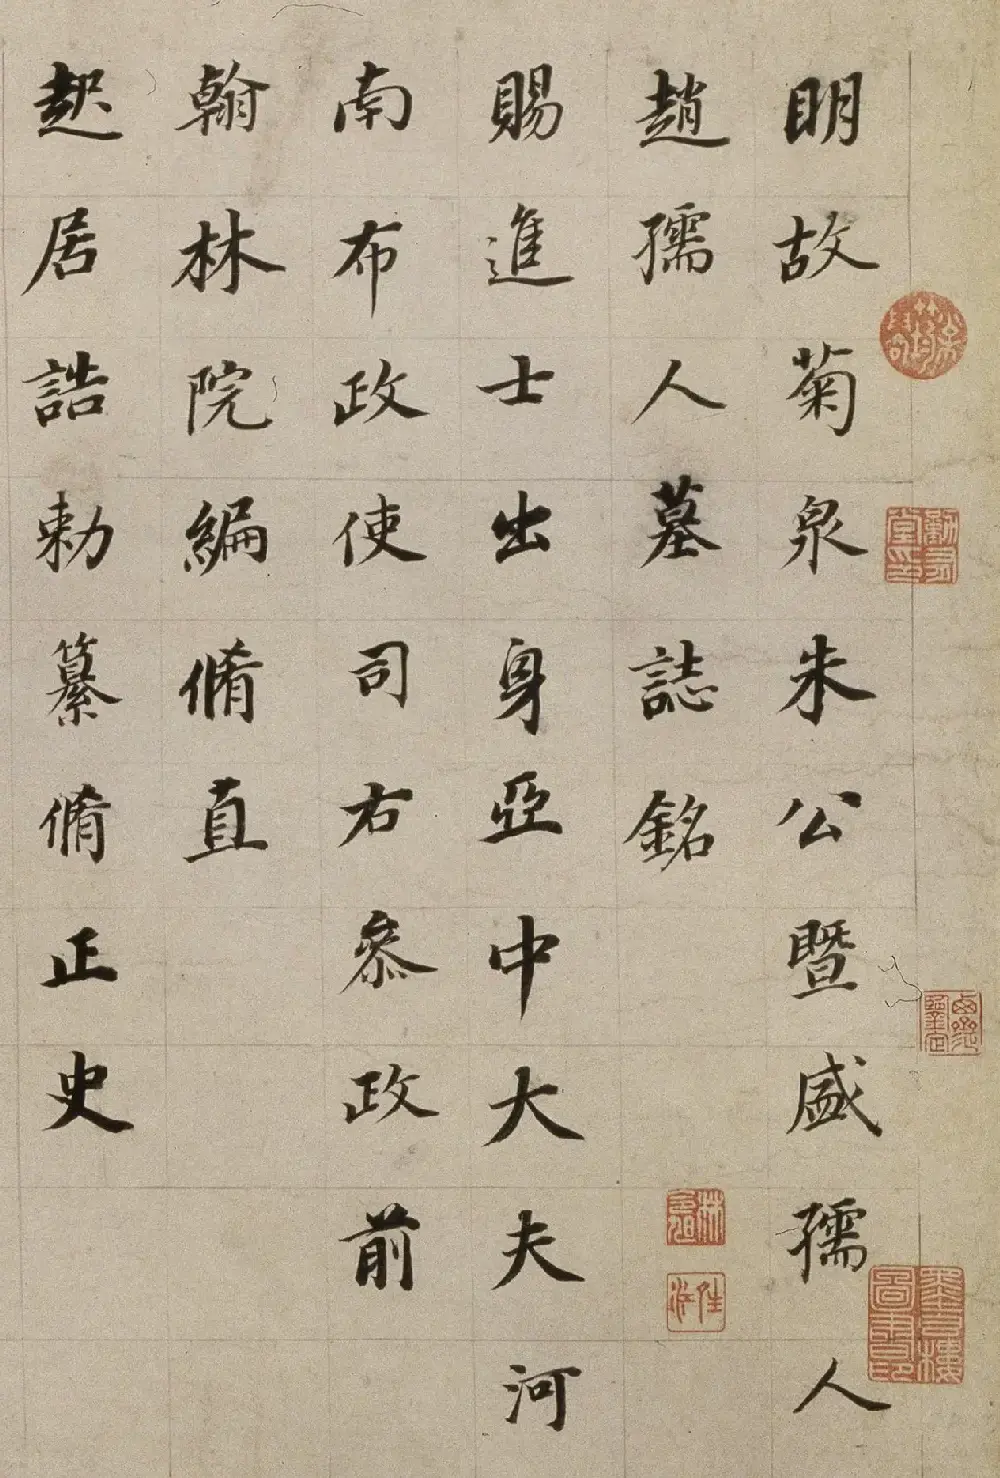 明故菊泉朱公暨盛孺人
趙孺人墓誌銘
賜進士出身亞中大夫河
南布政使司右叅政前
翰林院編脩直
起居誥勅纂脩正史